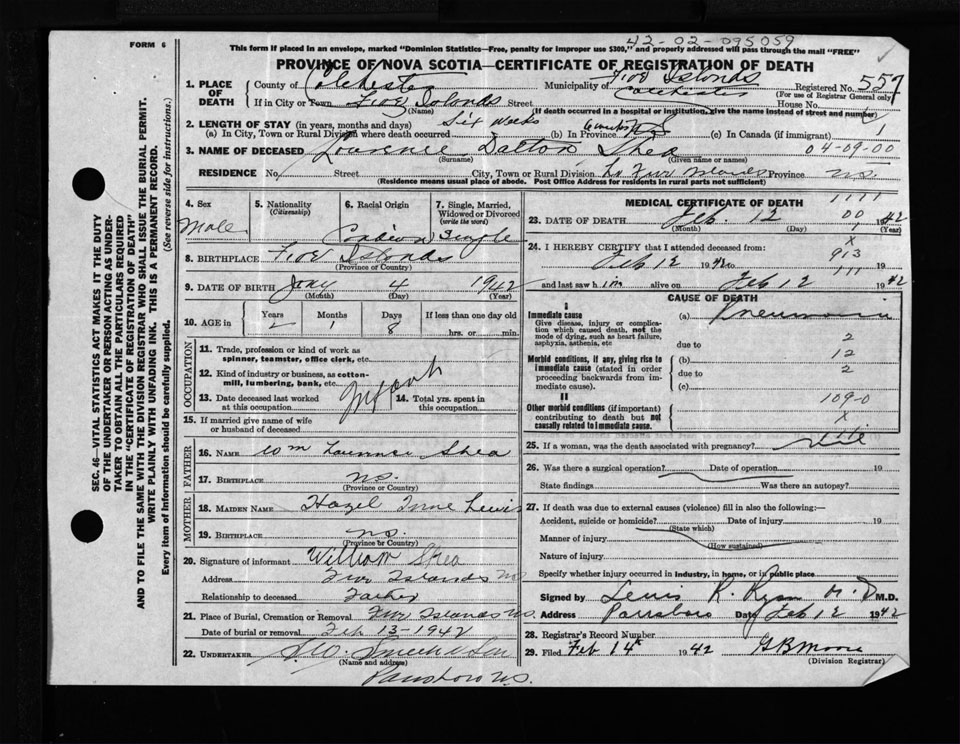 FORM 6
42-02-095059
This form if placed in an envelope, marked "Dominion Statistics—Free, penalty for improper use $300," and properly addressed will pass through the mail "FREE"
PROVINCE OF NOVA SCOTIA—CERTIFICATE OF REGISTRATION OF DEATH
SEC. 46—VITAL STATISTICS ACT MAKES IT THE DUTY
OF THE UNDERTAKER OR PERSON ACTING AS UNDER-
TAKER TO OBTAIN ALL THE PARTICULARS REQUIRED
IN THE "CERTIFICATE OF REGISTRATION OF DEATH"
AND TO FILE THE SAME WITH THE DIVISION REGISTRAR WHO SHALL ISSUE THE BURIAL PERMIT.
WRITE PLAINLY WITH UNFADING INK. THIS IS A PERMANENT RECORD.
Every item of Information should be carefully supplied. (See reverse side for instructions.)
1. PLACE OF DEATH
County of Colchester Municipality of Five Islands Colchester Registered No. 557
(For use of Registrar General only)
If in City or Town Five Islands Street House No.
(Name) (If death occurred in a hospital or institution, give the name instead of street and number)
2. LENGTH OF STAY (in years, months and days)
(a) In City, Town or Rural Division where death occurred Six weeks (b) In Province 6 weeks (c) In Canada (if immigrant) 1
3. NAME OF DECEASED Lawrence Dalton Shea 04-09-00
(Surname) (Given name or names)
RESIDENCE No. Street City, Town or Rural Division Five Islands Province N.S.
(Residence means usual place of abode. Post Office Address for residents in rural parts not sufficient)
4. Sex Male
5. Nationality (Citizenship)
6. Racial Origin
7. Single, Married, Widowed or Divorced (write the word) Single
8. BIRTHPLACE Five Islands
(Province or Country)
9. DATE OF BIRTH Jany 4 1942
(Month) (Day) (Year)
10. AGE in Years Months 1 Days 8 If less than one day old hrs. or min.
OCCUPATION
11. Trade, profession or kind of work as spinner, teamster, office clerk, etc.
12. Kind of industry or business, as cotton-mill, lumbering, bank, etc.
Infant
13. Date deceased last worked at this occupation
14. Total yrs. spent in this occupation
15. If married give name of wife or husband of deceased
FATHER
16. NAME Wm Lawrence Shea
17. BIRTHPLACE N.S.
(Province or Country)
MOTHER
18. MAIDEN NAME Hazel Lewis
19. BIRTHPLACE N.S.
(Province or Country)
20. Signature of informant William Shea
Address Five Islands NS
Relationship to deceased Father
21. Place of Burial, Cremation or Removal Five Islands N.S.
Date of burial or removal Feb 13-1942
22. UNDERTAKER
(Name and address)
Parrsboro N.S.
MEDICAL CERTIFICATE OF DEATH
1111
23. DATE OF DEATH Feb. 12 00 1942
(Month) (Day) (Year)
24. I HEREBY CERTIFY that I attended deceased from:
Feb 12 1942 to 19
x
913
111
and last saw him alive on Feb 12 1942
CAUSE OF DEATH
I
Immediate cause (a) Pneumonia
Give disease, injury or complication which caused death, not the mode of dying, such as heart failure, asphyxia, asthenia, etc
due to 2
Morbid conditions, if any, giving rise to immediate cause (stated in order proceeding backwards from immediate cause).
(b) 12
due to 2
(c)
II
Other morbid conditions (if important) contributing to death but not causally related to immediate cause.
109-0
x
25. If a woman, was the death associated with pregnancy?
26. Was there a surgical operation? Date of operation 19
State findings Was there an autopsy?
27. If death was due to external causes (violence) fill in also the following:—
Accident, suicide or homicide? Date of injury 19
(State which)
Manner of injury
(How sustained)
Nature of injury
Specify whether injury occurred in industry, in home, or in public place
Signed by Lewis R. Ryan M.D. M.D.
Address Parrsboro Date Feb 12 1942
28. Registrar's Record Number
29. Filed Feb 14th 1942 G B Moore
(Division Registrar)